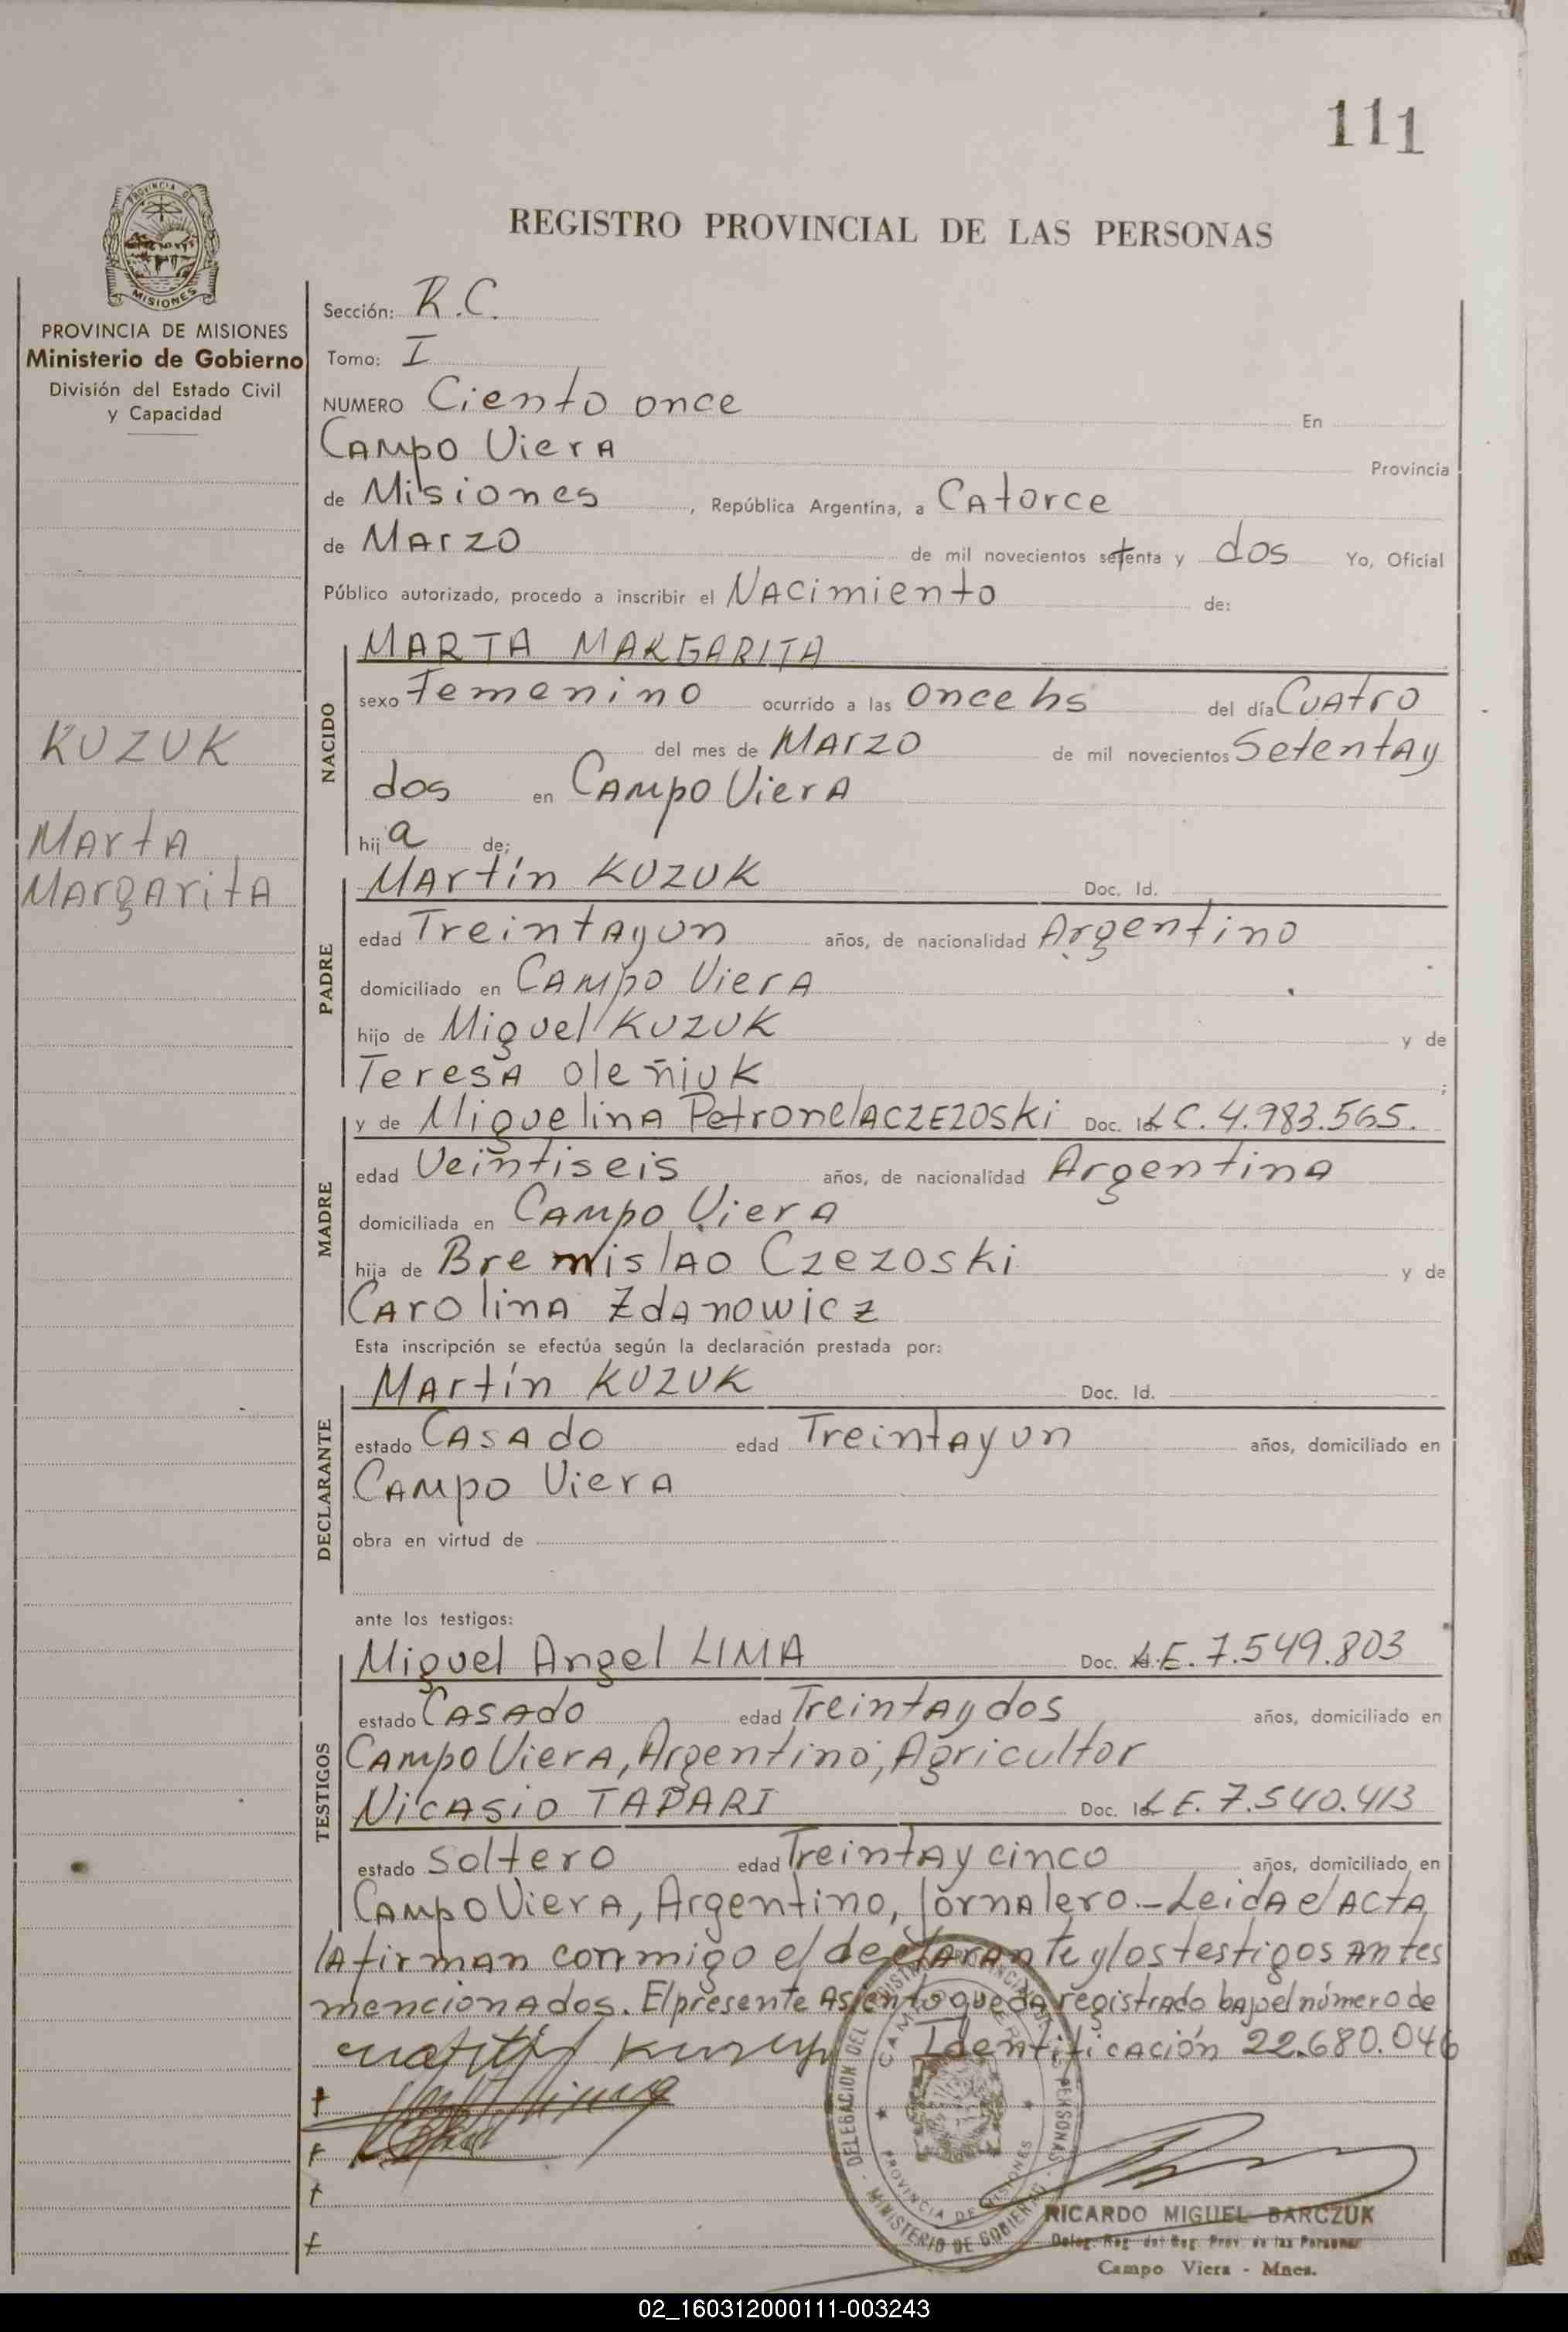 111
PROVINCIA DE
MISIONES
PROVINCIA DE MISIONES
Ministerio de Gobierno
División del Estado Civil
y Capacidad
KUZUK
Marta
Margarita
REGISTRO PROVINCIAL DE LAS PERSONAS
Sección: R.C.
Tomo: I
NUMERO Ciento once En
Campo Viera Provincia
de Misiones, República Argentina, a Catorce
de Marzo de mil novecientos setenta y dos Yo, Oficial
Público autorizado, procedo a inscribir el Nacimiento de:
NACIDO
MARTA MARGARITA
sexo Femenino ocurrido a las once hs del día Cuatro
del mes de Marzo de mil novecientos Setenta y
dos en Campo Viera
hija de;
PADRE
Martín KUZUK Doc. Id.
edad Treinta y un años, de nacionalidad Argentino
domiciliado en Campo Viera
hijo de Miguel KUZUK y de
Teresa Oleñiuk ;
MADRE
y de Miguelina Petronela CZEZOSKI Doc. Id. L.C. 4.983.565.
edad Veintiseis años, de nacionalidad Argentina
domiciliada en Campo Viera
hija de Bremislao Czezoski y de
Carolina Zdanowicz
Esta inscripción se efectúa según la declaración prestada por:
DECLARANTE
Martín KUZUK Doc. Id.
estado Casado edad Treinta y un años, domiciliado en
Campo Viera
obra en virtud de
ante los testigos:
TESTIGOS
Miguel Angel LIMA Doc. Id. L.E. 7.549.803
estado Casado edad Treinta y dos años, domiciliado en
Campo Viera, Argentino, Agricultor
Nicasio TAPARI Doc. Id. L.E. 7.540.413
estado soltero edad Treinta y cinco años, domiciliado en
Campo Viera, Argentino, Jornalero.- Leida el acta
la firman conmigo el declarante y los testigos antes
mencionados. El presente Asiento queda registrado bajo el número de
Identificación 22.680.046
DELEGACION DEL REGISTRO PROVINCIAL DE LAS PERSONAS
CAMPO VIERA
PROVINCIA DE MISIONES
MINISTERIO DE GOBIERNO
RICARDO MIGUEL BARCZUK
Deleg. Reg. del Reg. Prov. de las Personas
Campo Viera - Mnes.
02_160312000111-003243